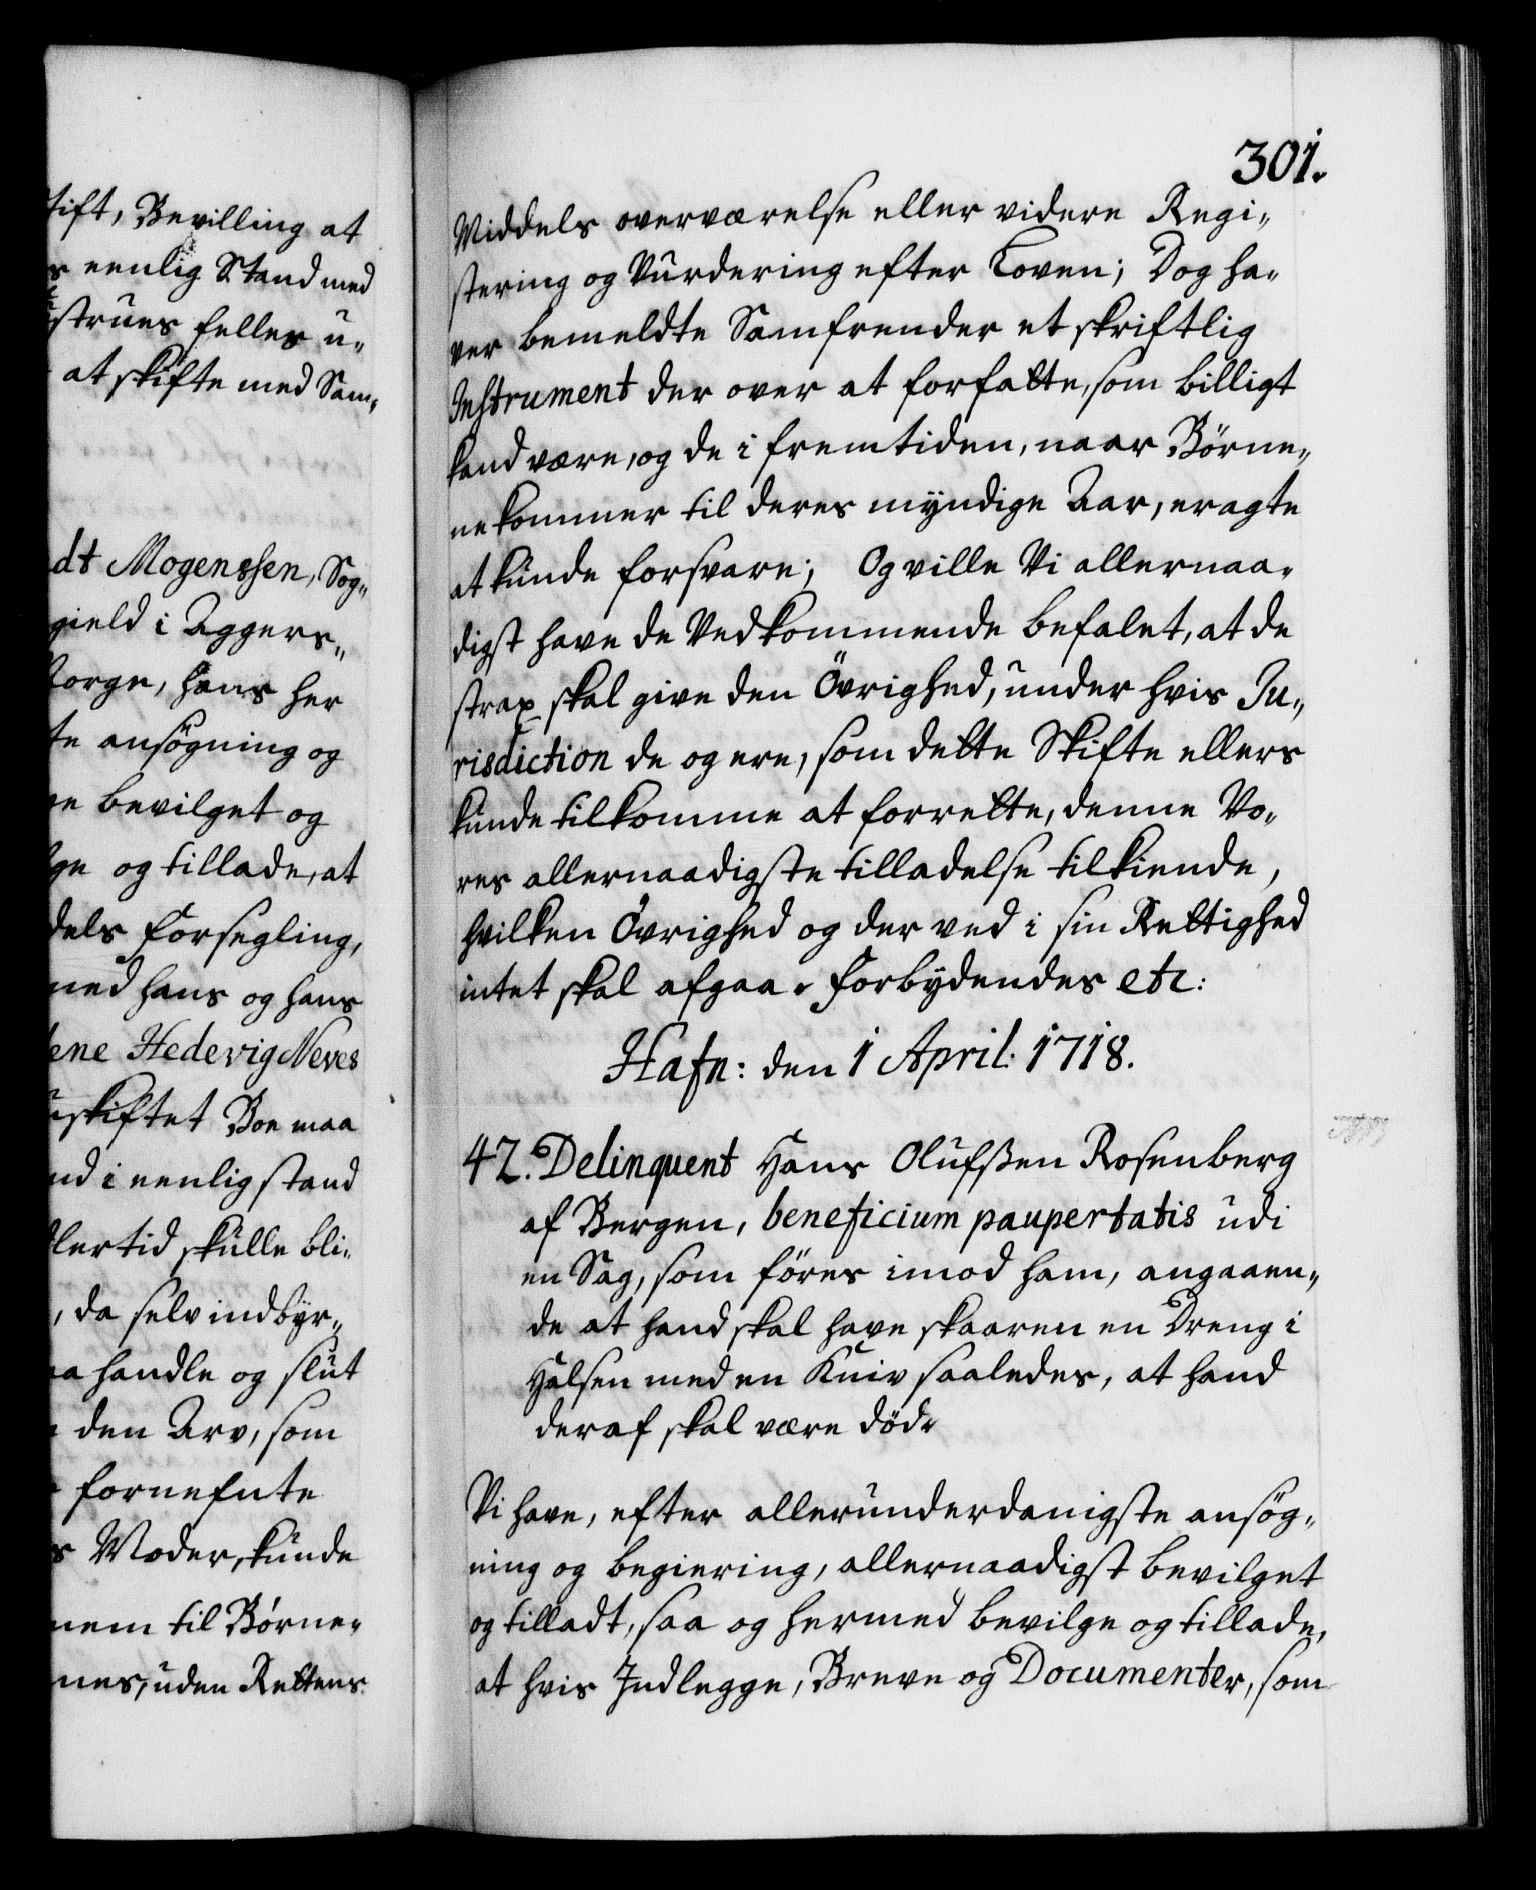 tift, Bevilling at
eenlig Stand med
strues felles u-
at skifte med Sam-
dt Mogenssen, Sog-
gield i Aggers-
Norge, hans her
te ansøgning og
bevilget og
og tillade, at
dels forsegling,
med hans og hans
ene Hedevig Neves
uskiftet Boe maa
nd i eenlig stand
lertid skulle bli-
, da selv indbyr-
handle og slut
den Arv, som
fornefnte
s Moder, kunde
nem til Børne-
nes, uden Rettens
301.
Middels overværelse eller videre Regi-
stering og Vurdering efter Loven; Dog ha-
ver bemeldte Samfrender et skriftlig
Instrument der over at forfatte, som billigt
kand være, og de i fremtiden, naar Børne-
ne kommer til deres myndige Aar, eragte
at kunde forsvare; Og ville Vi allernaa-
digst have de Vedkommende befalet, at de
strax skal give den Övrighed, under hvis Ju-
risdiction de og ere, som dette Skifte ellers
kunde tilkomme at forrette, denne Vo-
res allernaadigste tilladelse tilkiende,
hvilken Övrighed og der ved i sin Rettighed
intet skal afgaa. Forbydendes etc:
Hafn: den 1 April: 1718.
42. Delinquent Hans Olufssen Rosenberg
af Bergen, beneficium paupertatis udi
en Sag, som föres imod ham, angaaen-
de at hand skal have skaaren en Dreng i
Halsen med en Kniv saaledes, at hand
deraf skal være död.
Vi have, efter allerunderdanigste ansög-
ning og begiering, allernaadigst bevilget
og tilladt, saa og hermed bevilge og tillade,
at hvis Indlegge, Breve og Documenter, som